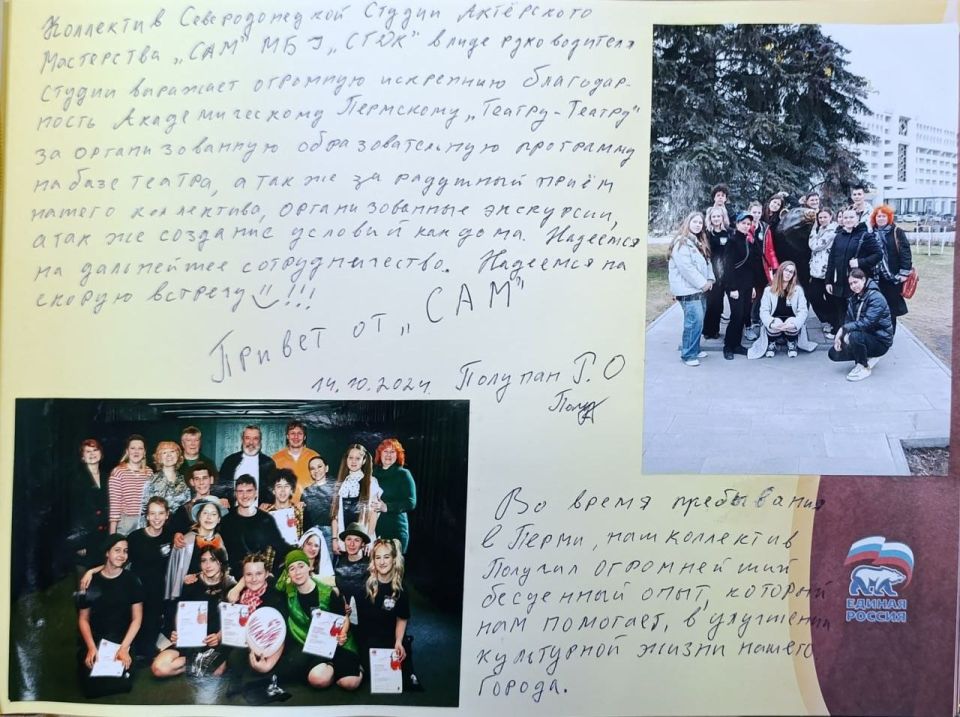 Коллектив Северодонецкой Студии Актёрского
Мастерства „САМ" МБУ „СГДК" в лице руководителя
студии выражает огромную искреннию благодар-
ность Академическому Пермскому „Театру-Театру"
за организованную образовательную программу
на базе театра, а так же за радушный приём
нашего коллектива, организованные экскурсии,
а так же создание условий как дома. Надеемся
на дальнейшее сотрудничество. Надеемся на
скорую встречу!!!
Привет от „САМ"
14.10.2024 Полупан Г.О
Во время пребывания
в Перми, наш коллектив
Получил огромнейший
бесценный опыт, который
нам помогает, в улучшении
культурной жизни нашего
Города.
ЕДИНАЯ
РОССИЯ